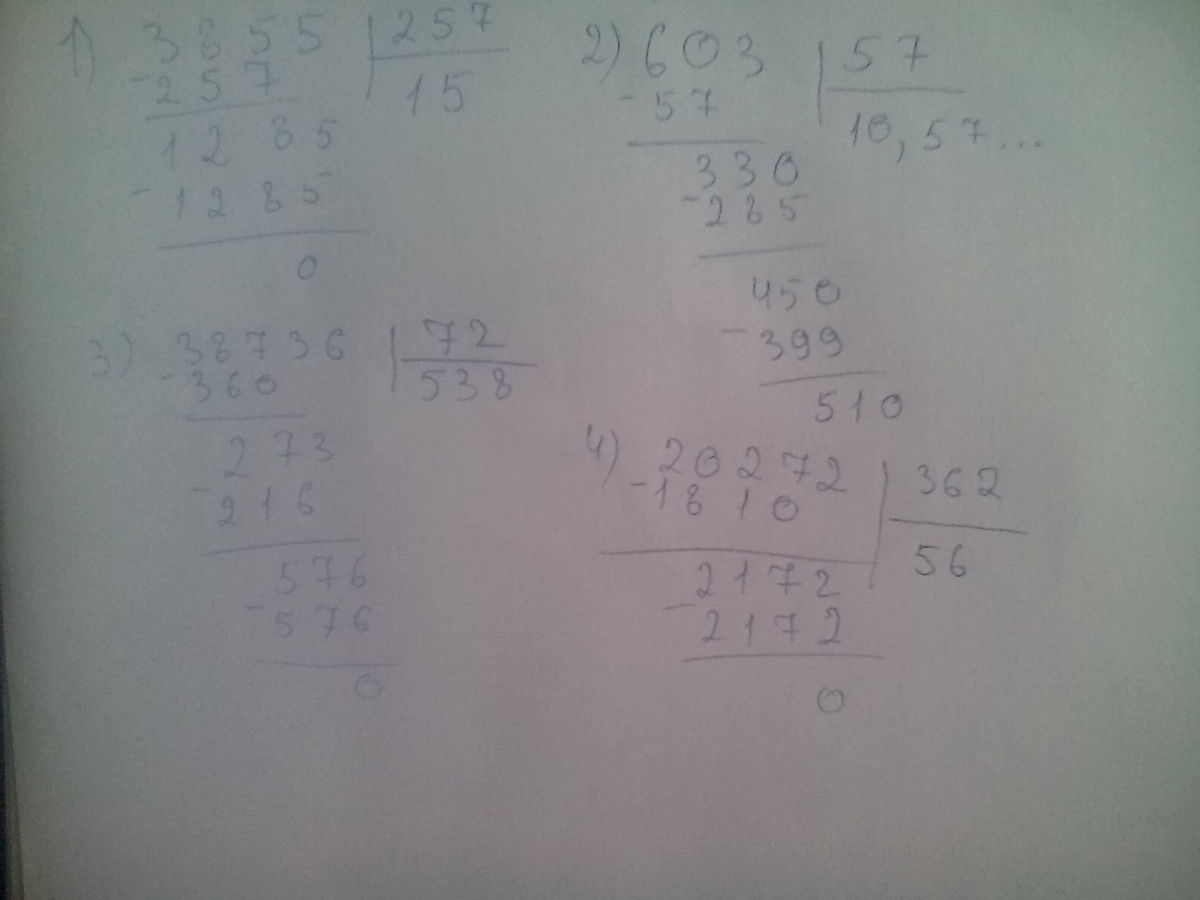 1) 3855 257
-257 15
1285
-1285
0
2) 603 57
-57 10,57...
330
-285
450
-399
510
3) 38736 72
-360 538
273
-216
576
-576
0
4) 20272 362
-1810 56
2172
-2172
0